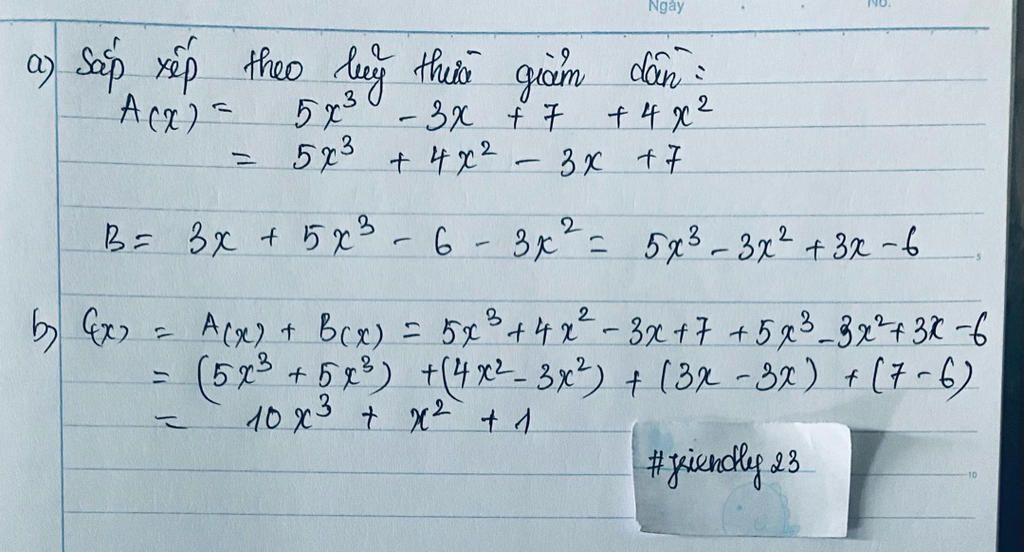 Ngày No.
a) Sắp xếp theo luỹ thừa giảm dần:
A(x) = 5x³ - 3x + 7 + 4x²
= 5x³ + 4x² - 3x + 7
B = 3x + 5x³ - 6 - 3x² = 5x³ - 3x² + 3x - 6
5
b) C(x) = A(x) + B(x) = 5x³ + 4x² - 3x + 7 + 5x³ - 3x² + 3x - 6
= (5x³ + 5x³) + (4x² - 3x²) + (3x - 3x) + (7 - 6)
= 10x³ + x² + 1
#friendly 23
10